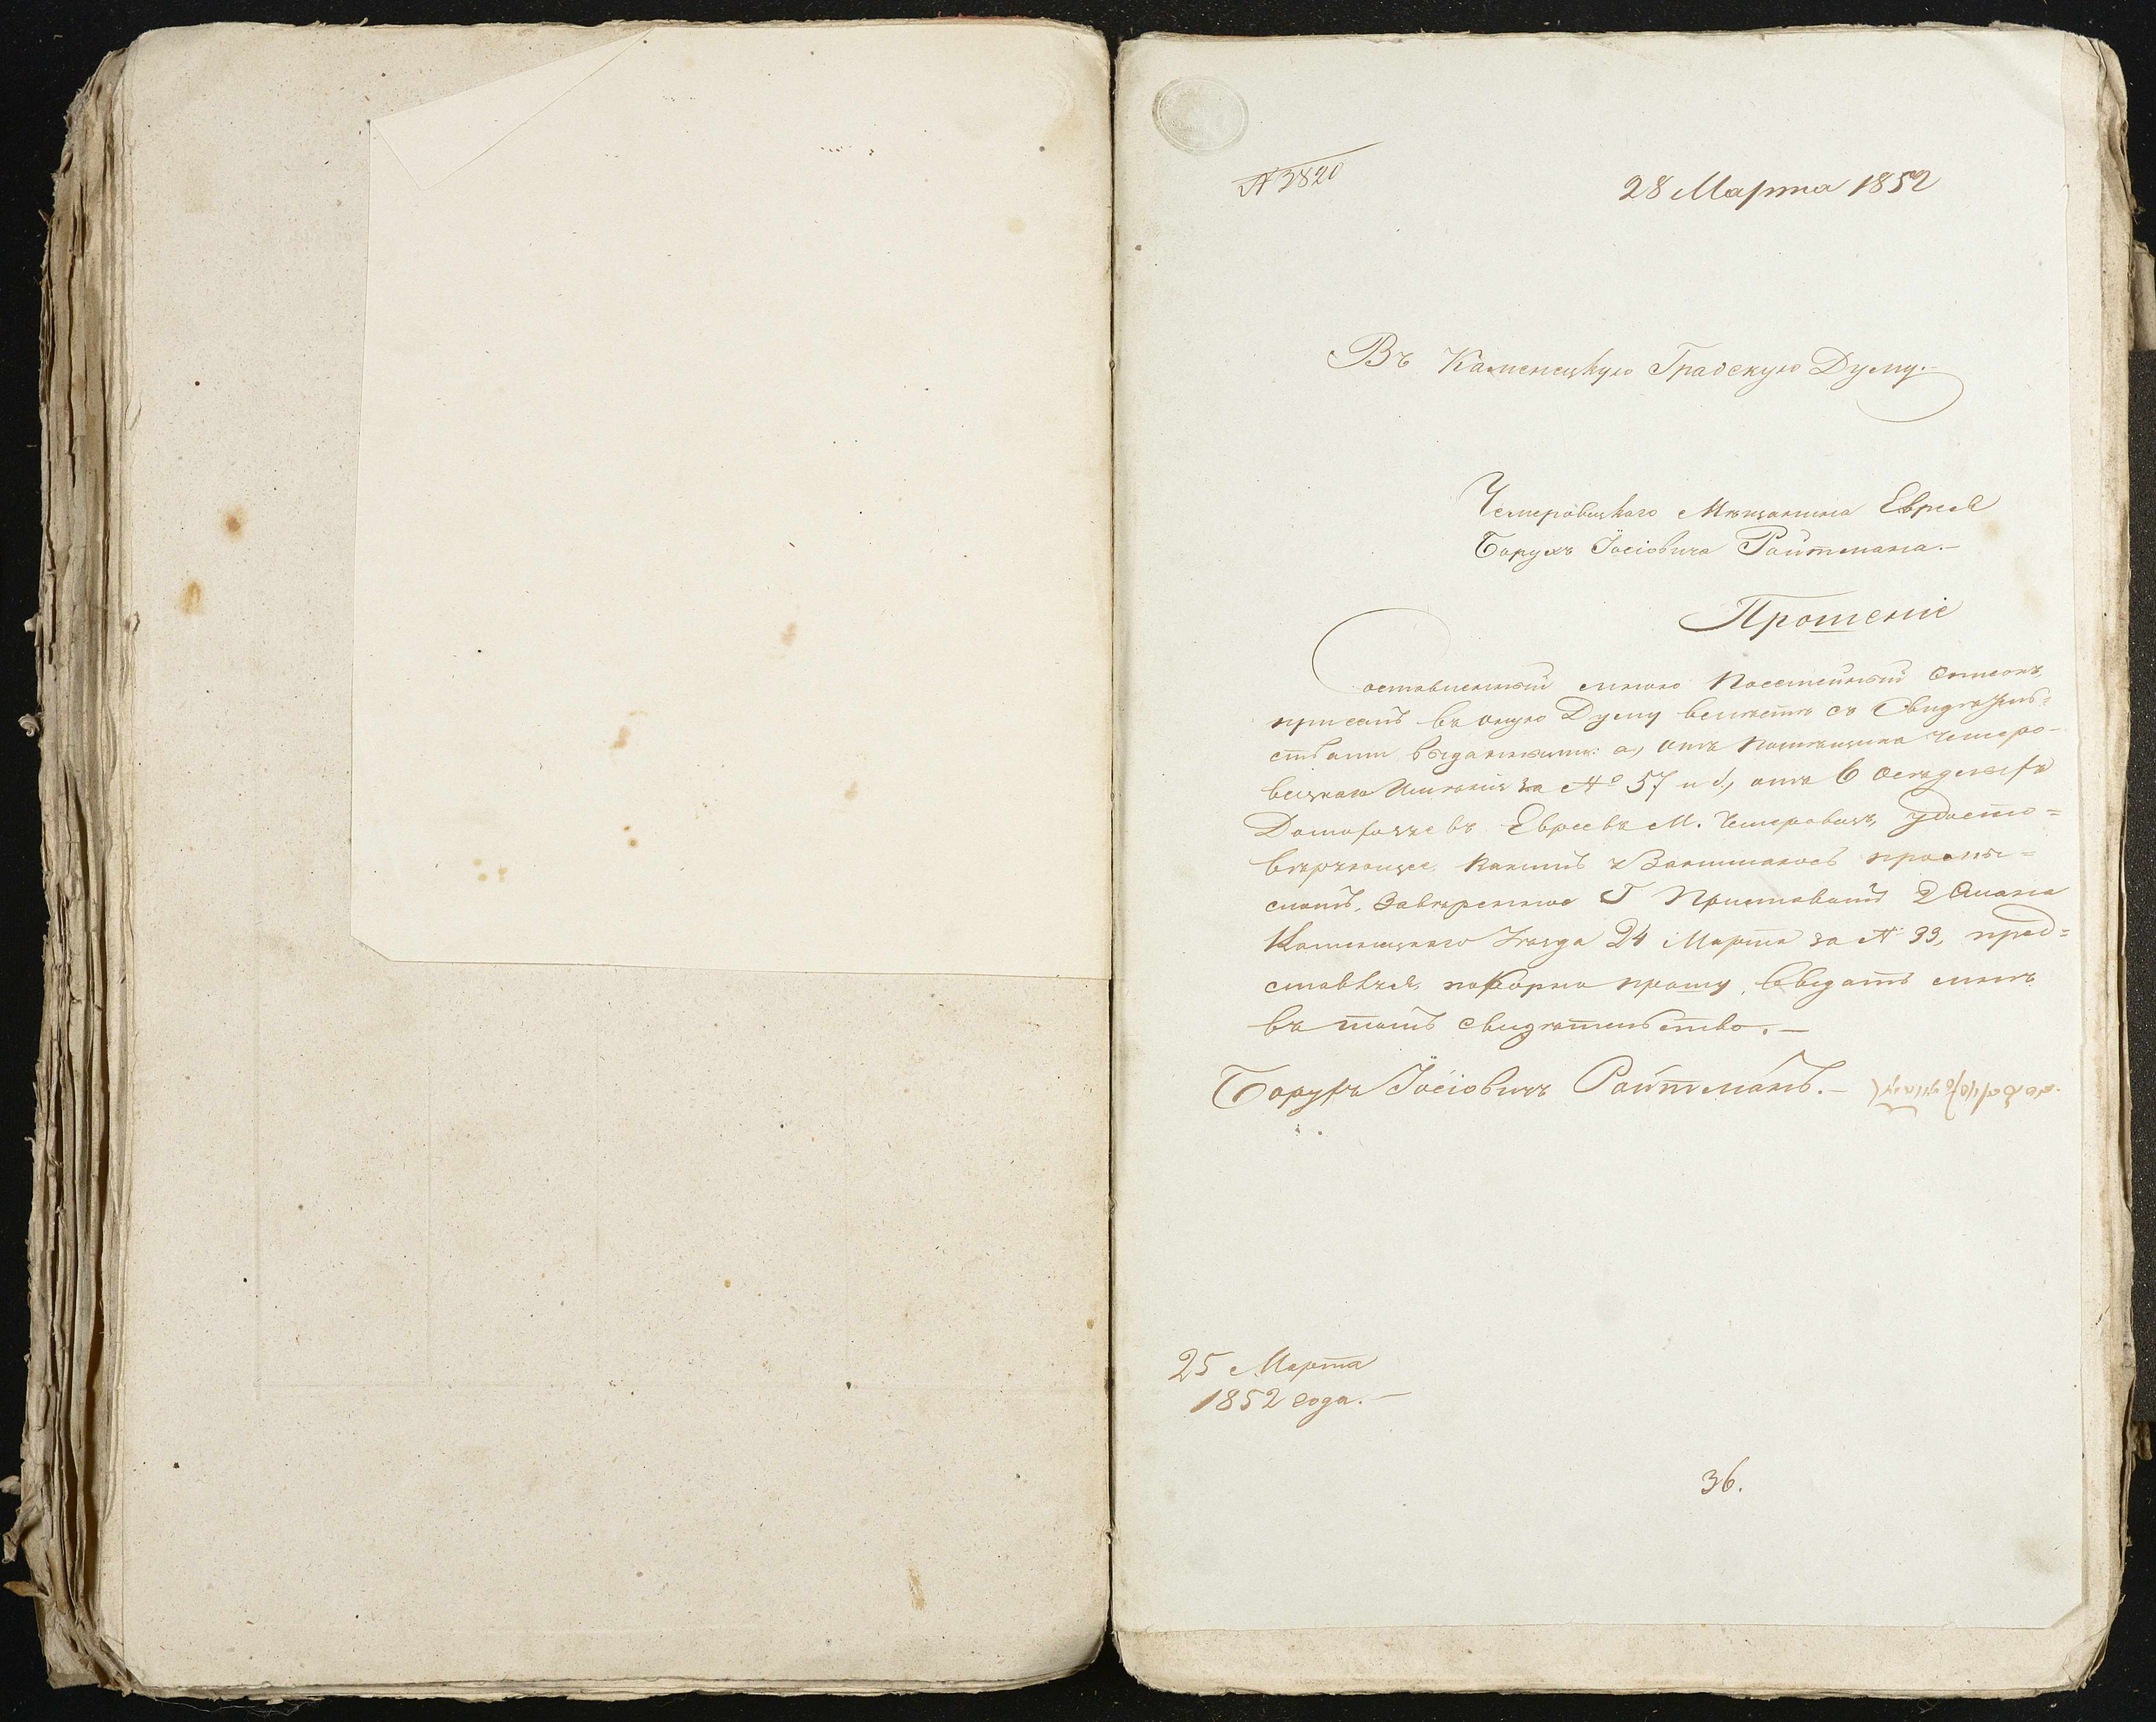 № 3820
28 Марта 1852
Въ Каменецкую Градскую Думу.
Чемеровецкаго Мѣщанина Еврея
Борухъ Іосіовича Ройтмана.
Прошеніе
оставленный мною Посемейный Списокъ
при семъ въ оную Думу вместѣ съ Свидѣтель=
ствами выданными: а, отъ Помѣщика Чемеро-
вецкаго Имѣнія за № 57 и б, отъ 6 осѣдлыхъ
Домохозяевъ Евреевъ М. Чемеровецъ, удосто=
вѣряющее, какимъ я Занимаюсь промы=
сломъ, Завѣренное Г Приставомъ 2 Стана
Каменецкаго Уѣзда 24 Марта за № 33, пред=
ставляя, покорно прошу, выдать мнѣ
въ томъ свидѣтельство.—
Борухъ Іосіовичъ Ройтманъ.—
25 Марта
1852 года.—
36.